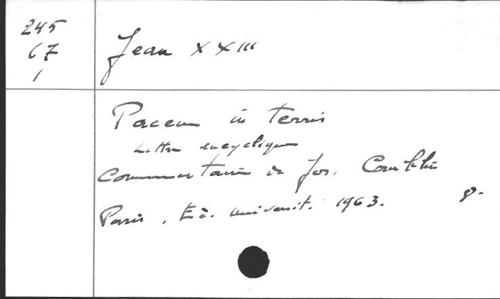 245
67
1
Jean XXIII
Pacem in terris
Lettre encyclique
Commentaire de Jos. Comblin
Paris, Ed. Universit. 1963. 8.